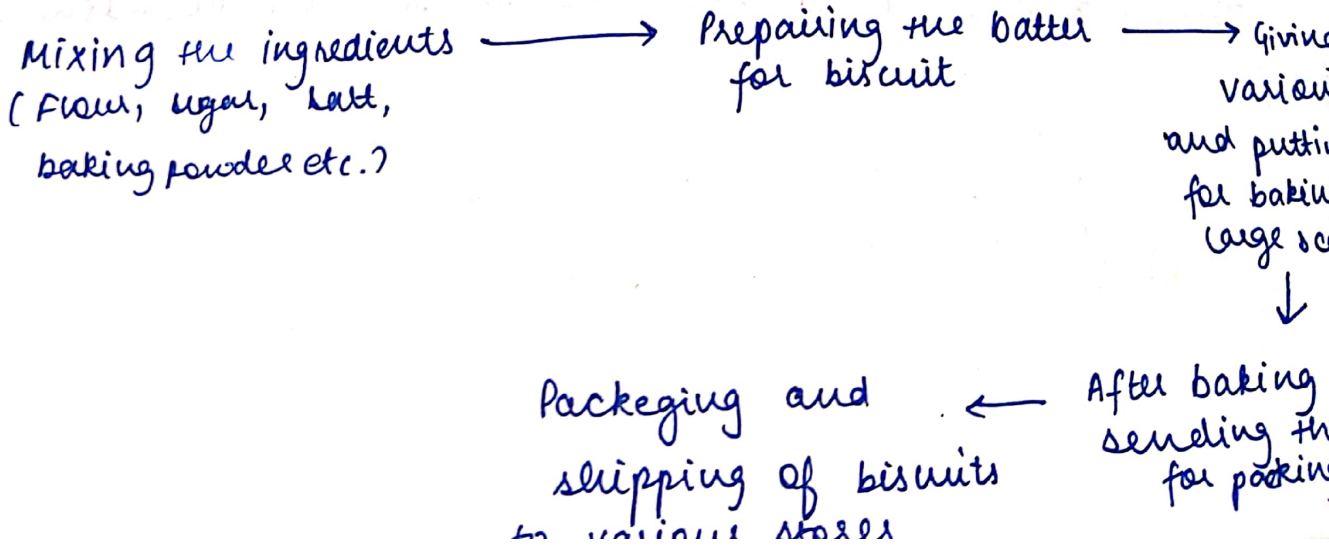 Mixing the ingredients
(Flour, sugar, salt,
baking powder etc.)
Prepairing the batter
for biscuit
Giving
variou
and puttin
for bakin
large sc
After baking
sending th
for packing
Packeging and
shipping of biscuits
to various stores